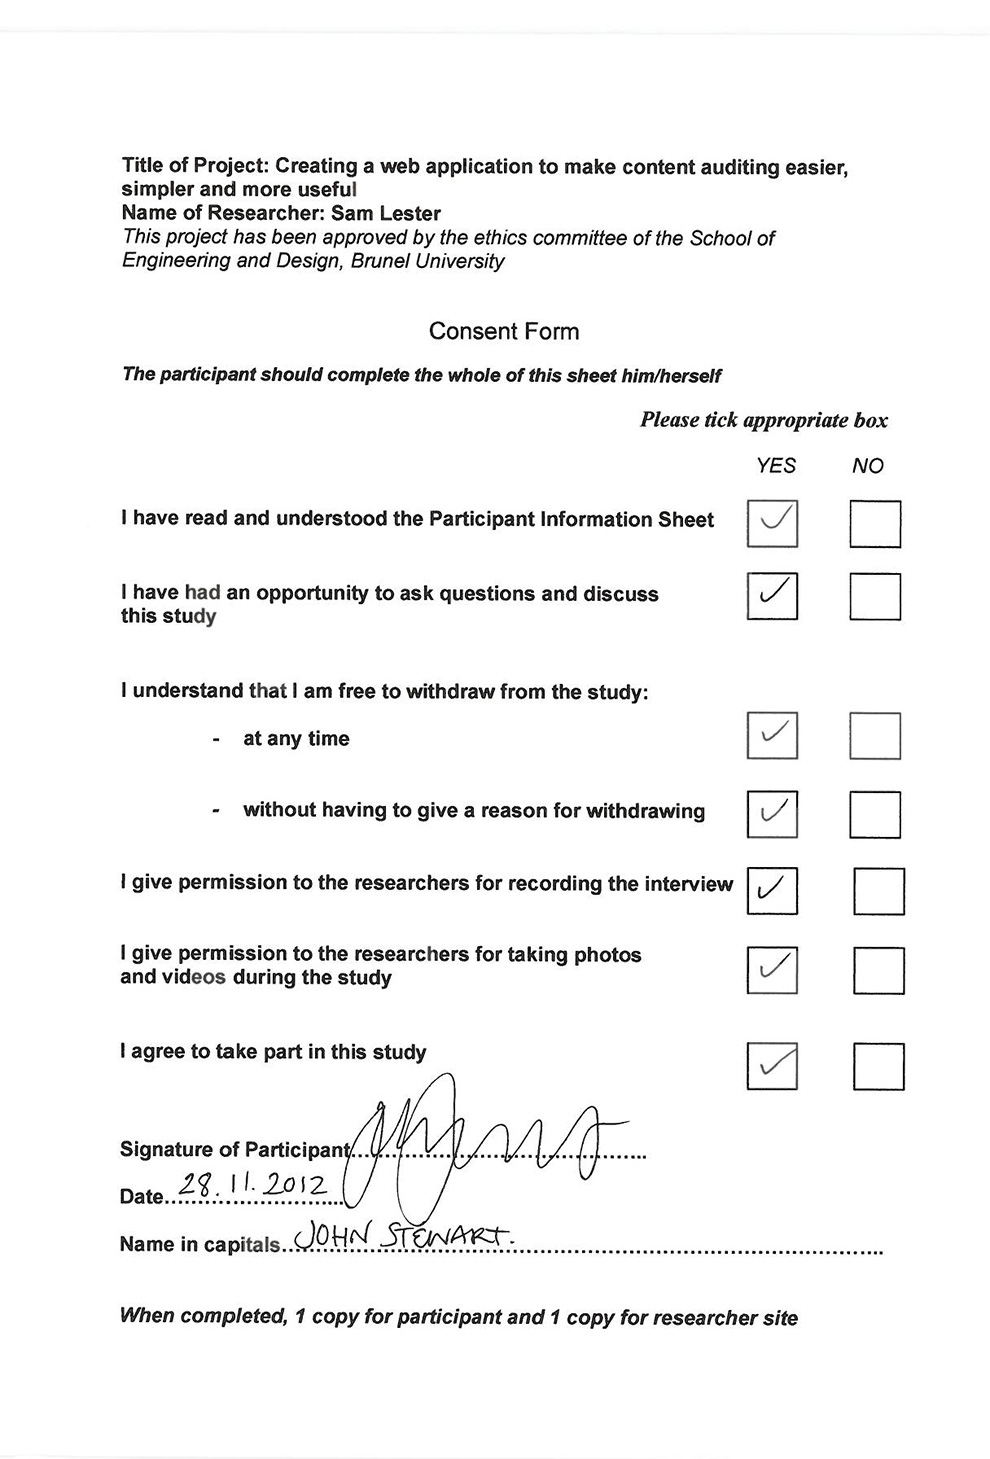 Title of Project: Creating a web application to make content auditing easier,
simpler and more useful
Name of Researcher: Sam Lester
This project has been approved by the ethics committee of the School of
Engineering and Design, Brunel University
Consent Form
The participant should complete the whole of this sheet him/herself
Please tick appropriate box
YES NO
I have read and understood the Participant Information Sheet
I have had an opportunity to ask questions and discuss
this study
I understand that I am free to withdraw from the study:
- at any time
- without having to give a reason for withdrawing
I give permission to the researchers for recording the interview
I give permission to the researchers for taking photos
and videos during the study
I agree to take part in this study
Signature of Participant
Date 28.11.2012
Name in capitals JOHN STEWART.
When completed, 1 copy for participant and 1 copy for researcher site